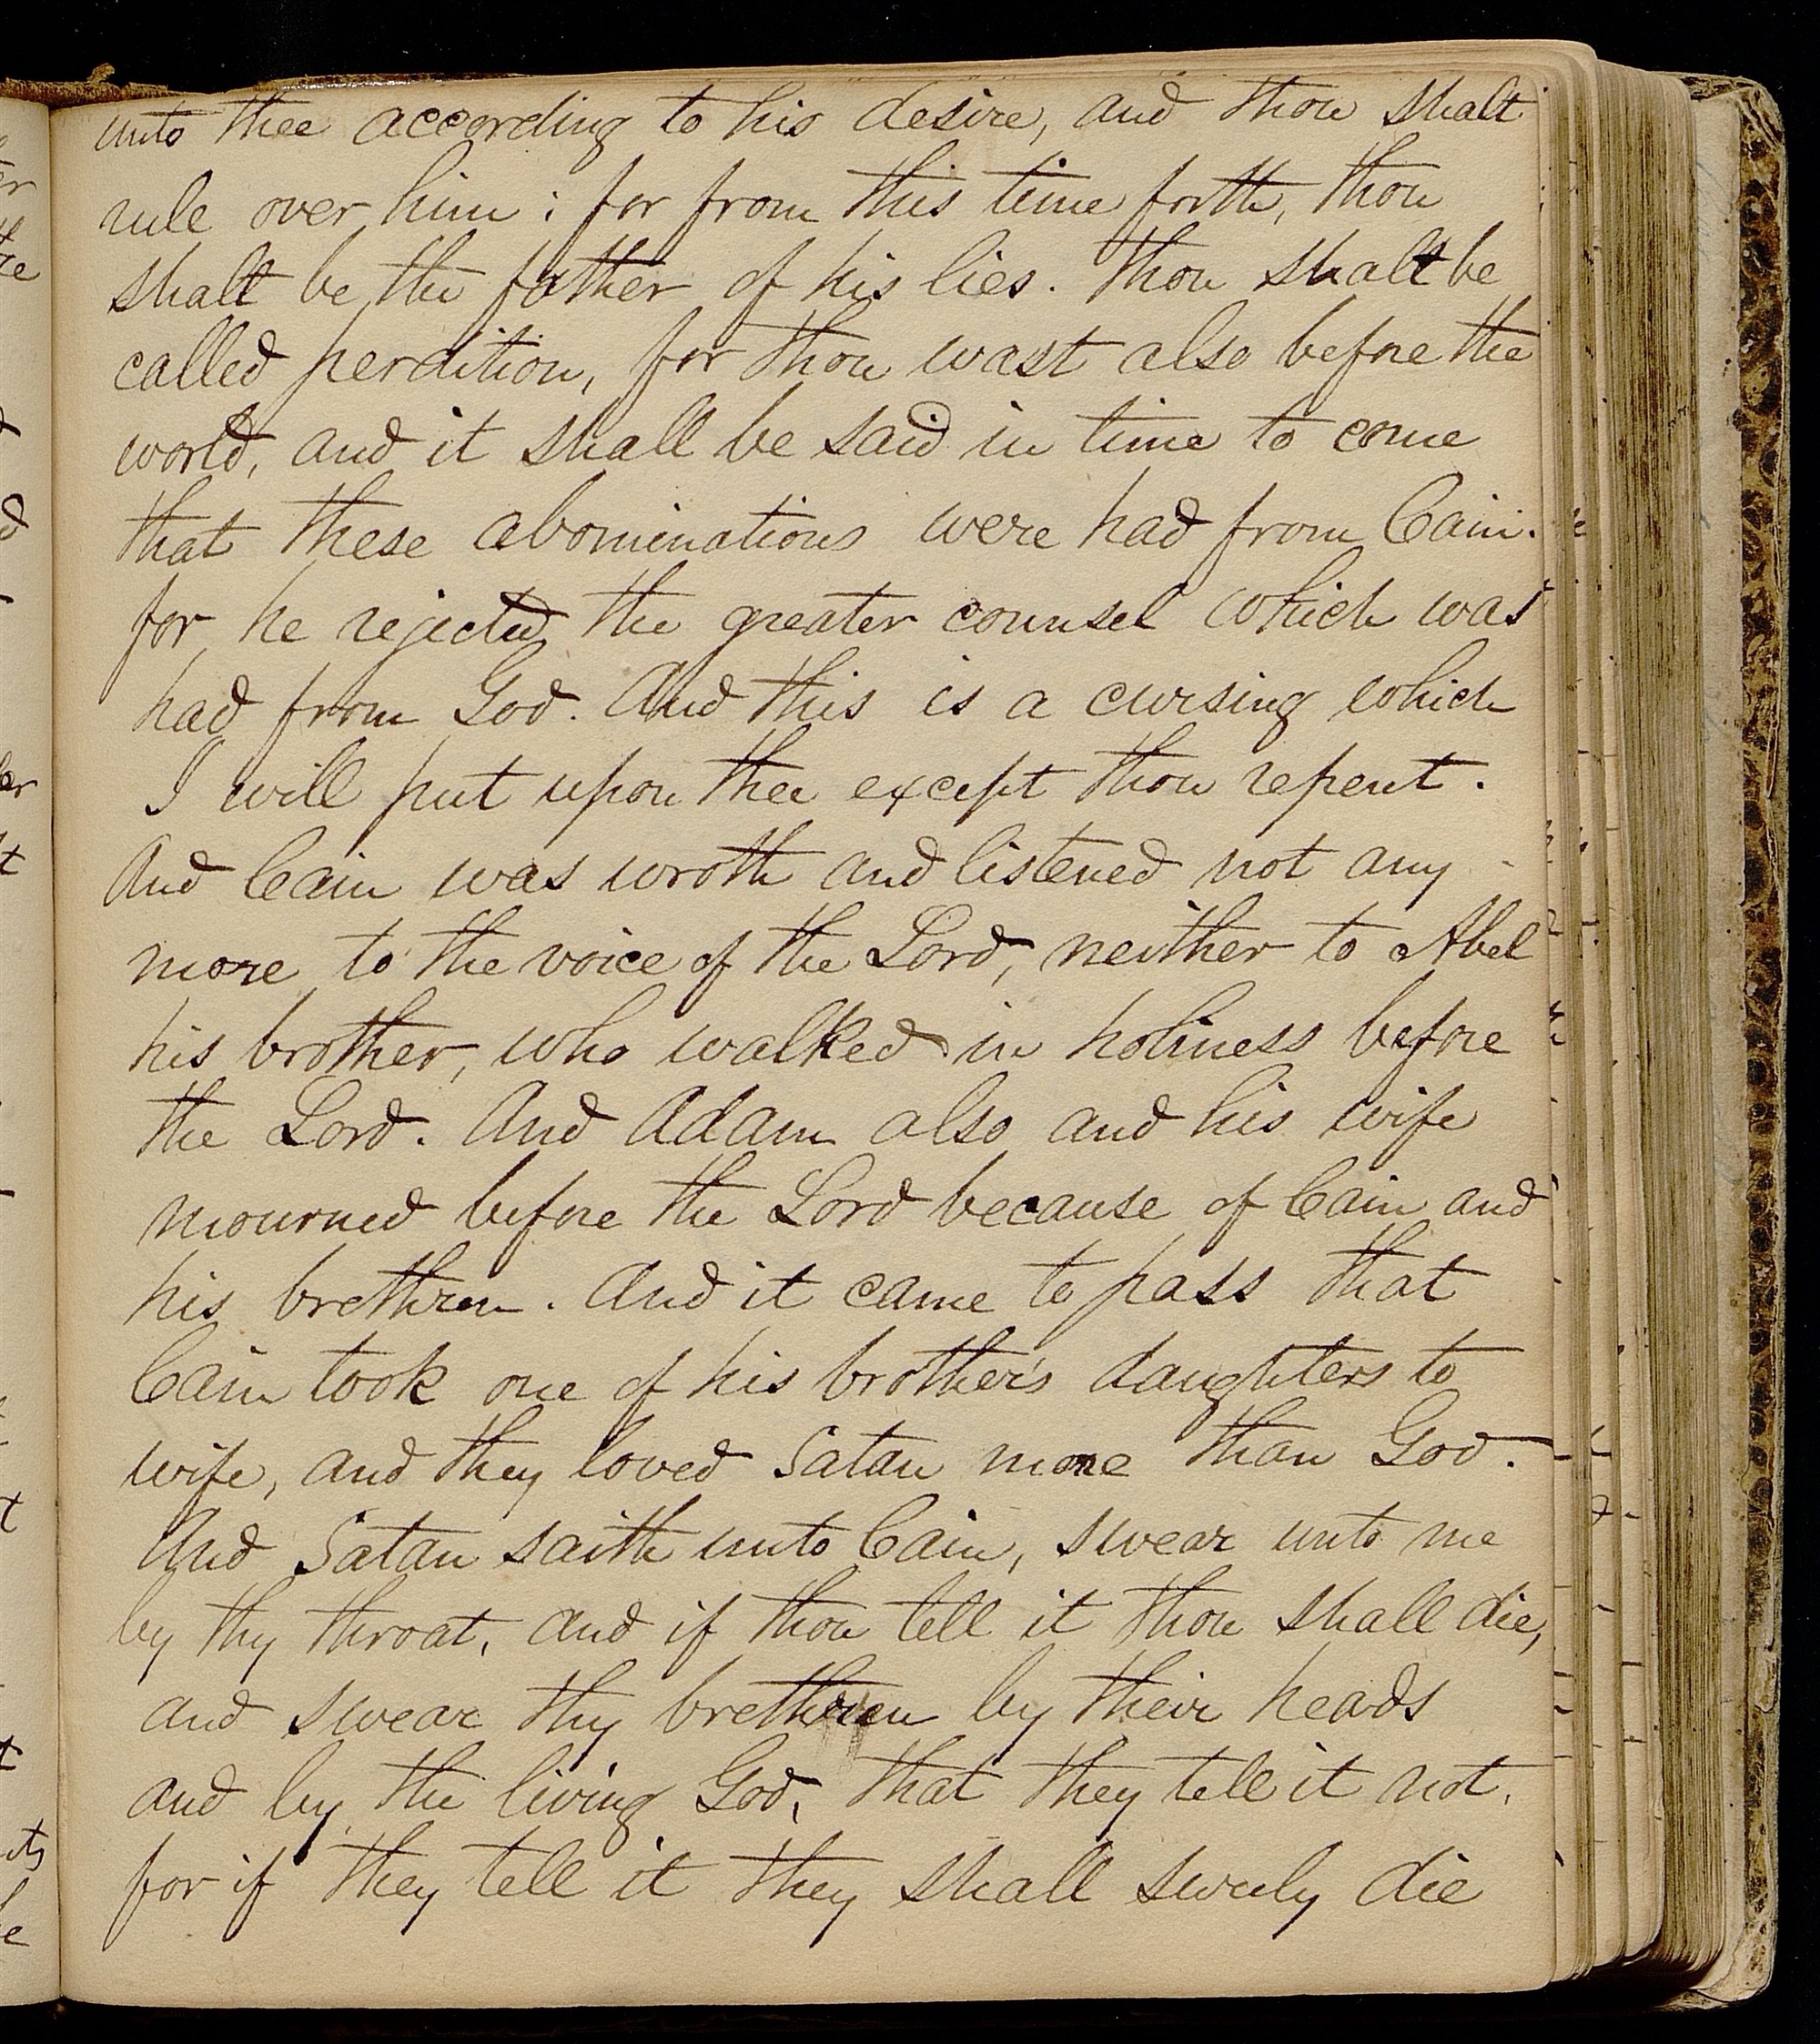 unto thee according to his desire, and thou shalt
rule over him; for from this time forth, thou
shalt be the father of his lies. Thou shalt be
called perdition, for thou wast also before the
world, and it shall be said in time to come
that these abominations were had from Cain.
for he rejected the greater counsel which was
had from God. And this is a cursing which
I will put upon thee except thou repent.
And Cain was wroth and listened not any
more to the voice of the Lord, neither to Abel
his brother, who walked in holiness before
the Lord. And Adam also and his wife
mourned before the Lord because of Cain and
his brethren. And it came to pass that
Cain took one of his brother's daughters to
wife, and they loved Satan more than God.
And Satan saith unto Cain, swear unto me
by thy throat, and if thou tell it thou shall die,
and swear thy brethren by their heads
and by the living God, that they tell it not,
for if they tell it they shall surely die